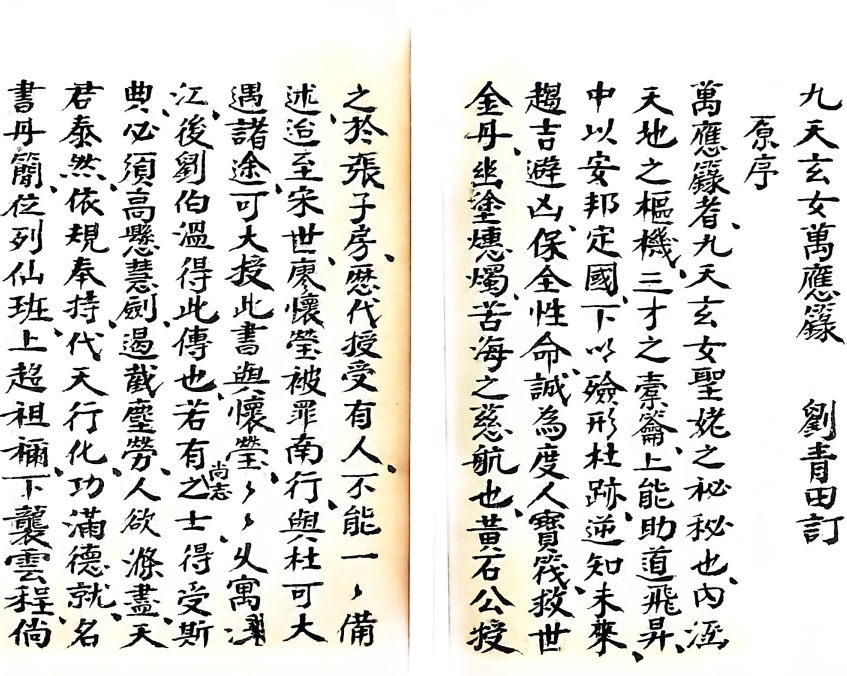 九天玄女萬應籙 劉青田訂
原序
萬應籙者、九天玄女聖姥之秘秘也、內涵
天地之樞機、三才之橐籥、上能助道飛昇、
中以安邦定國、下以殮形杜跡、逆知未來、
趨吉避凶、保全性命、誠為度人寶筏、救世
金丹、幽塗熜燭、苦海之慈航也、黃石公授
之於張子房、歷代授受有人、不能一々備
述、迨至宋世、廖懷瑩被罪南行、與杜可大
遇諸途、可大授此書與懷瑩、々々乆寓
江、後劉伯溫得此傳也、若有尚志之士得受斯
典、必須高懸慧劍、遏截塵勞、人欲滌盡、天
君泰然、依規奉持、代天行化、功滿德就、名
書丹簡、位列仙班、上超祖禰、下襲雲程、倘